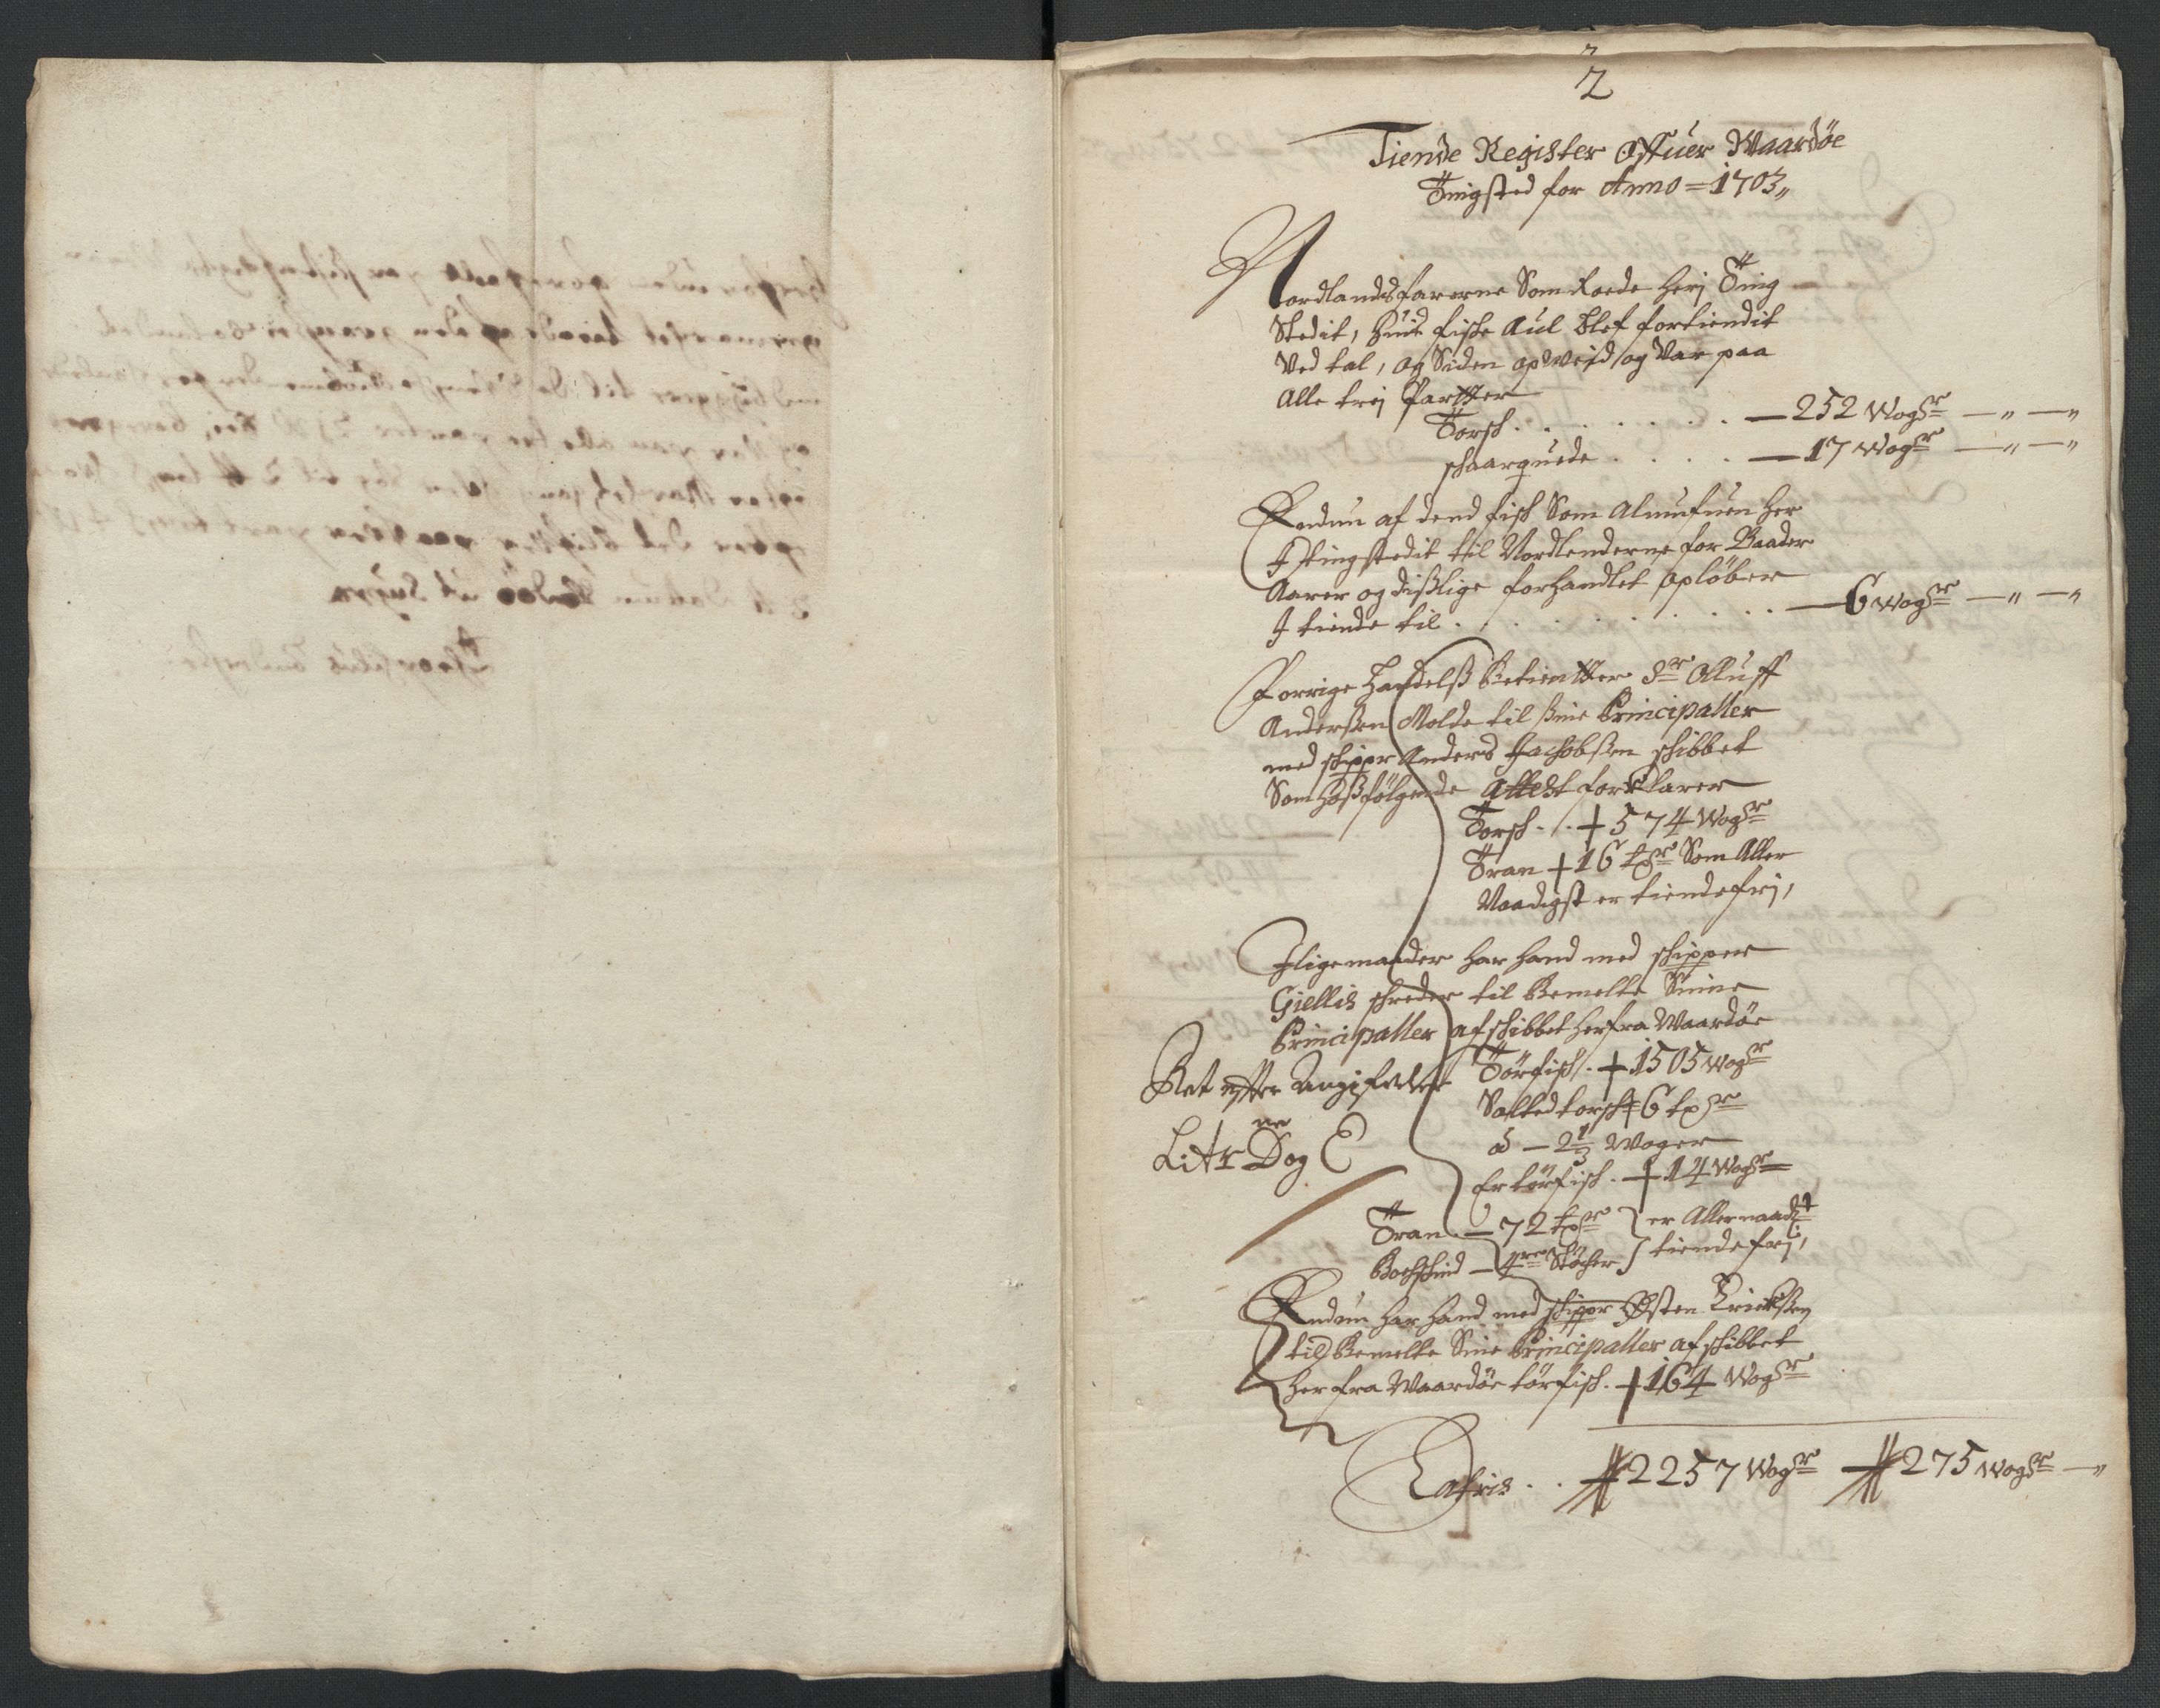 2
Tiende Register Offuer Waardøe
Tingsted for Anno = 1703,,
Nordlandsfarerne Som Roede herj Ting
Stedit, huis fiske Aul blef fortiendit
Ved tal, og Siden opweid og Var paa
Alle trej Partter
Torsk . . . . . . . — 252 Wogr — ,, — ,,
skaarquede . . . . — 17 Wogr — ,, — ,,
Endnu af dend fisk Som Almufuen her
J tingstedit til Nordlenderne for Baader
Aarer og dislige forhandlet opløber
J tiende til . . . . . . . . — 6 Wogr — ,, — ,,
Forrige Handelss Betientter Sr Olluff
Anderssen Molde til sine Principaller
med skippr Anders Jachobssen skibbet
Som hossfølgende Attest forklarer
Torsk . . + 574 Wogr
Tran + 16 tr Som Aller
Naadigst er tiendefrj,
J lige maader har hand med skipper
Giellis schreder til bemelte Sinne
Principaller afskibbet herfra Waardøe
Tørfisk . + 1505 Wogr
Ret efter Angifvelser
Salted torsk + 6 tr
ne
Litr D og E
a — 2 1/3 Woger
Er tørfisk . + 14 Wogr
Tran — 72 tr er Allernaadt
Bockskind — 4re Støcher tiendefrj,
Endnu har hand med skippr Østen Erickssen
til bemelte Sine Principaller afskibbet
her fra Waardøe tørfisk . + 164 Wogr
Lateris . . 2257 Wogr 275 Wogr — ,,